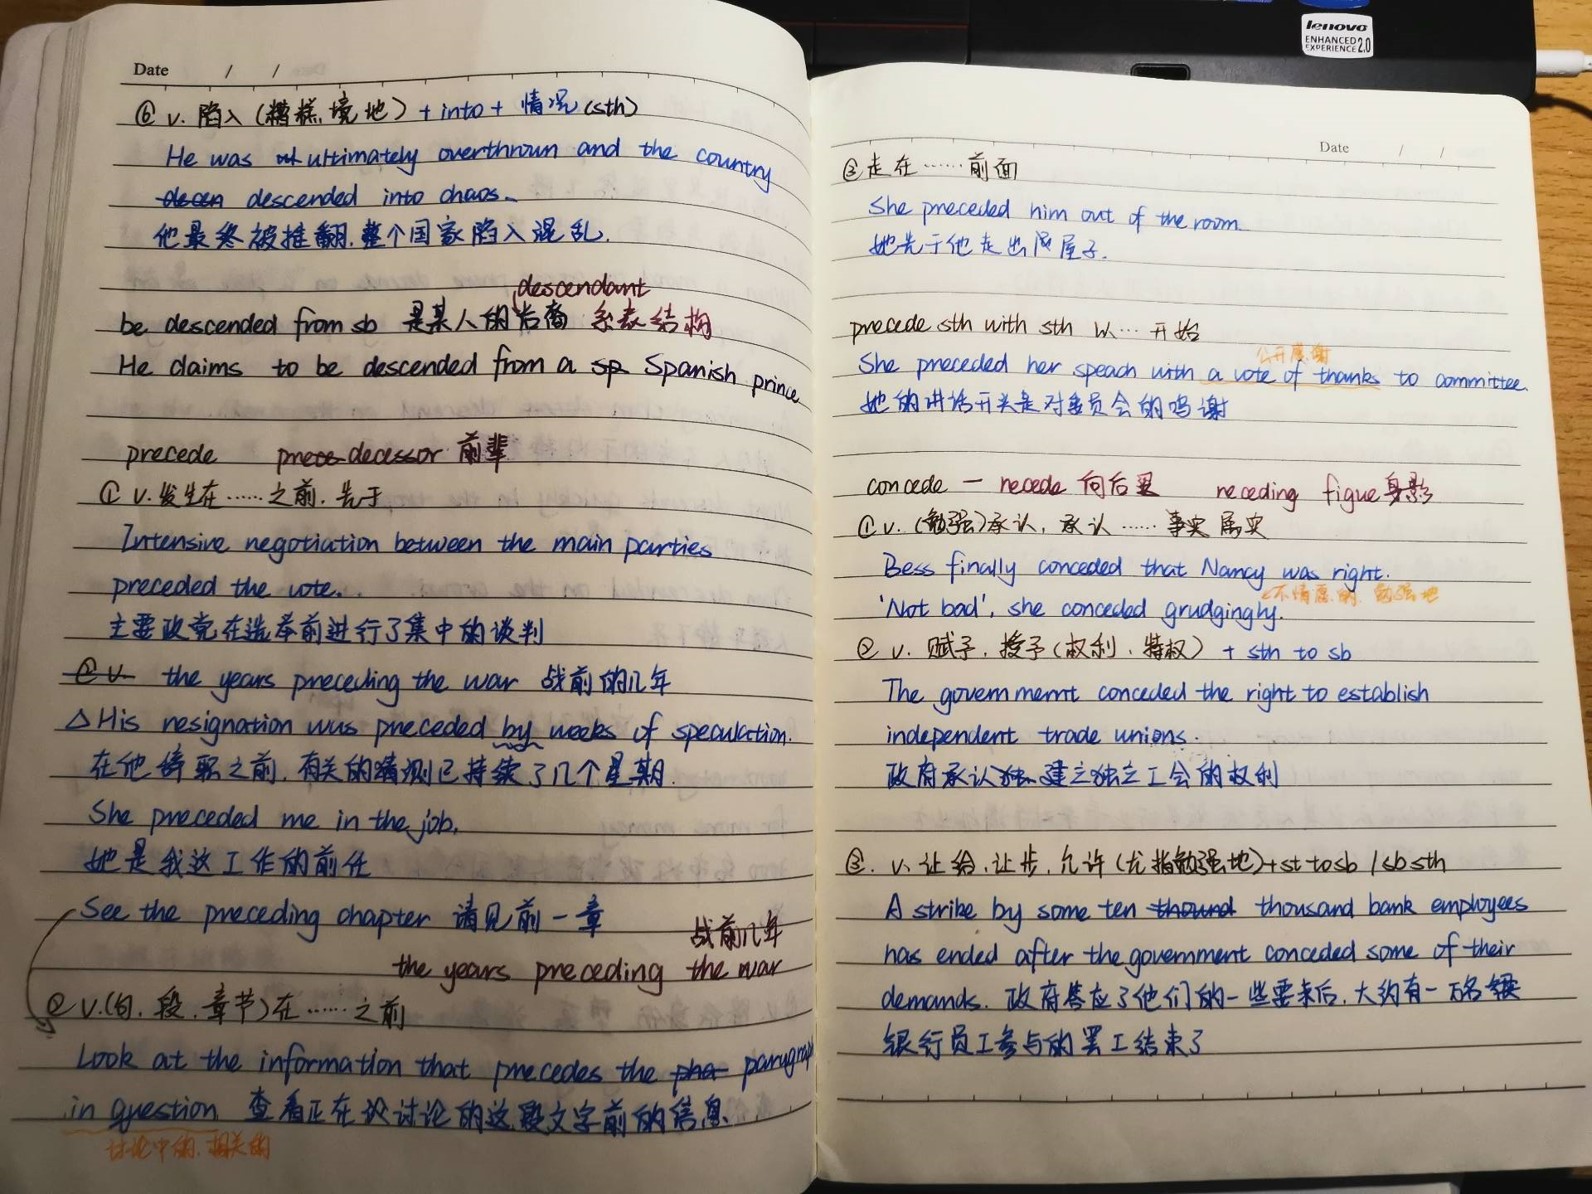 lenovo
ENHANCED
EXPERIENCE 2.0
Date / /
⑥ v. 陷入 (糟糕境地) + into + 情况 (sth)
He was ultimately overthrown and the country
descended into chaos.
他最终被推翻,整个国家陷入混乱.
descendant
be descended from sb 是某人的后裔 系表结构
He claims to be descended from a sp Spanish prince
precede predecessor 前辈
① v. 发生在……之前. 先于
Intensive negotiation between the main parties
preceded the vote.
主要政党在选举前进行了集中的谈判
② v. the years preceding the war 战前的几年
△ His resignation was preceded by weeks of speculation.
在他辞职之前,有关的猜测已持续了几个星期.
She preceded me in the job.
她是我这工作的前任
See the preceding chapter 请见前一章
战前几年
the years preceding the war
② v.(句, 段, 章节) 在……之前
Look at the information that precedes the pha paragraph
in question 查看正在议讨论的这段文字前的信息
讨论中的, 相关的
Date / /
③ 走在……前面
She preceded him out of the room.
她先于他走出屋子.
precede sth with sth 以…开始
公开感谢
She preceded her speach with a vote of thanks to committee.
她的讲话开头是对委员会的鸣谢
concede — recede 向后退 receding figue 身影
① v. (勉强)承认, 承认……事实属实
Bess finally conceded that Nancy was right.
不情愿的, 勉强地
'Not bad', she conceded grudgingly.
② v. 赋予, 授予 (权利, 特权) + sth to sb
The governmemt conceded the right to establish
independent trade unions.
政府承认独建立独立工会的权利
③. v. 让给, 让步, 允许 (尤指勉强地) + st to sb / sb sth
A strike by some ten thound thousand bank employees
has ended after the government conceded some of their
demands. 政府答应了他们的一些要求后, 大约有一万名
银行员工参与的罢工结束了